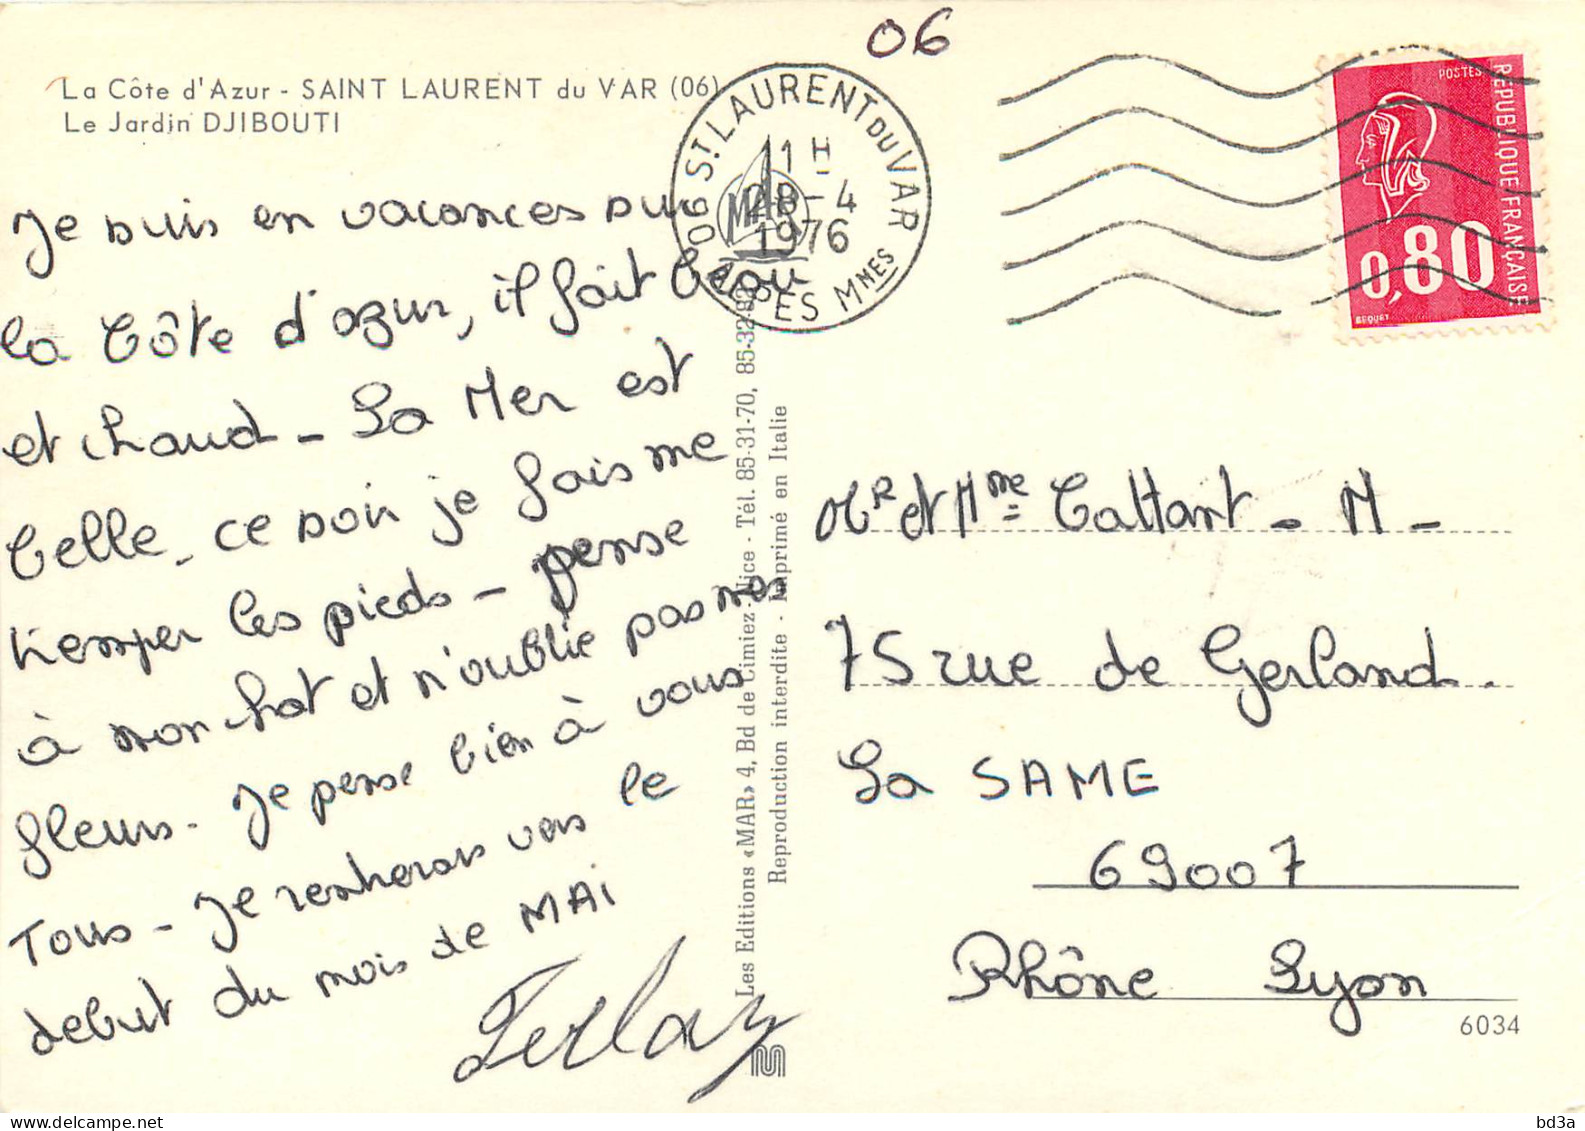 06
La Côte d'Azur - SAINT LAURENT du VAR (06)
Le Jardin DJIBOUTI
06 ST LAURENT DU VAR
11 H
28 - 4
1976
ALPES MMES
MAR
POSTES
REPUBLIQUE FRANÇAISE
0,80
BEQUET
Je suis en vacances sur
la Côte d'azur, il fait beau
et chaud - La Mer est
belle - ce soir je fais me
tremper les pieds - pense
à mon chat et n'oublie pas mes
fleurs - Je pense bien à vous
Tous - Je rentrerais vers le
debut du mois de MAI
Les Editions «MAR» 4, Bd de Cimiez - Nice - Tél. 85-31-70, 85-32-83
Reproduction interdite - Imprimé en Italie
Mr et Mme Cattant - M -
75 rue de Gerland.
La SAME
69007
Rhône Lyon
6034
bd3a